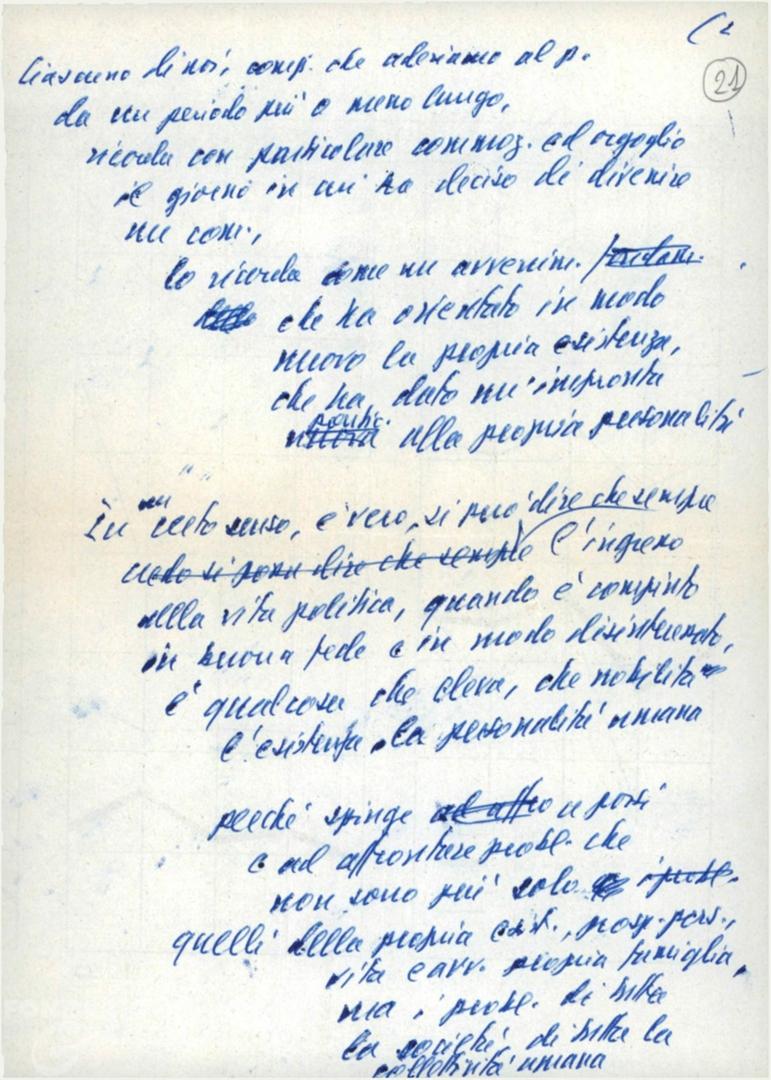 (2
21
Ciascuno di noi, comp. che aderiamo al p.
da un periodo più o meno lungo,
ricorda con particolare commoz. ed orgoglio
il giorno in cui ha deciso di divenire
un com.,
lo ricorda come un avvenim. fondam.
che ha orientato in modo
nuovo la propria esistenza,
che ha dato un'impronta
politic.
nuova alla propria personalità
In un certo senso, è vero, si può dire che sempre
certo si può dire che sempre l'ingresso
nella vita politica, quando è compiuto
in buona fede e in modo disinteressato,
è qualcosa che eleva, che nobilita
l'esistenza, la personalità umana
perché spinge ad affro a porsi
e ad affrontare probl. che
non sono più solo i probl.
quelli della propria esist., prosp. pers.,
vita e avv. propria famiglia,
ma i probl. di tutta
la società, di tutta la
collettività umana